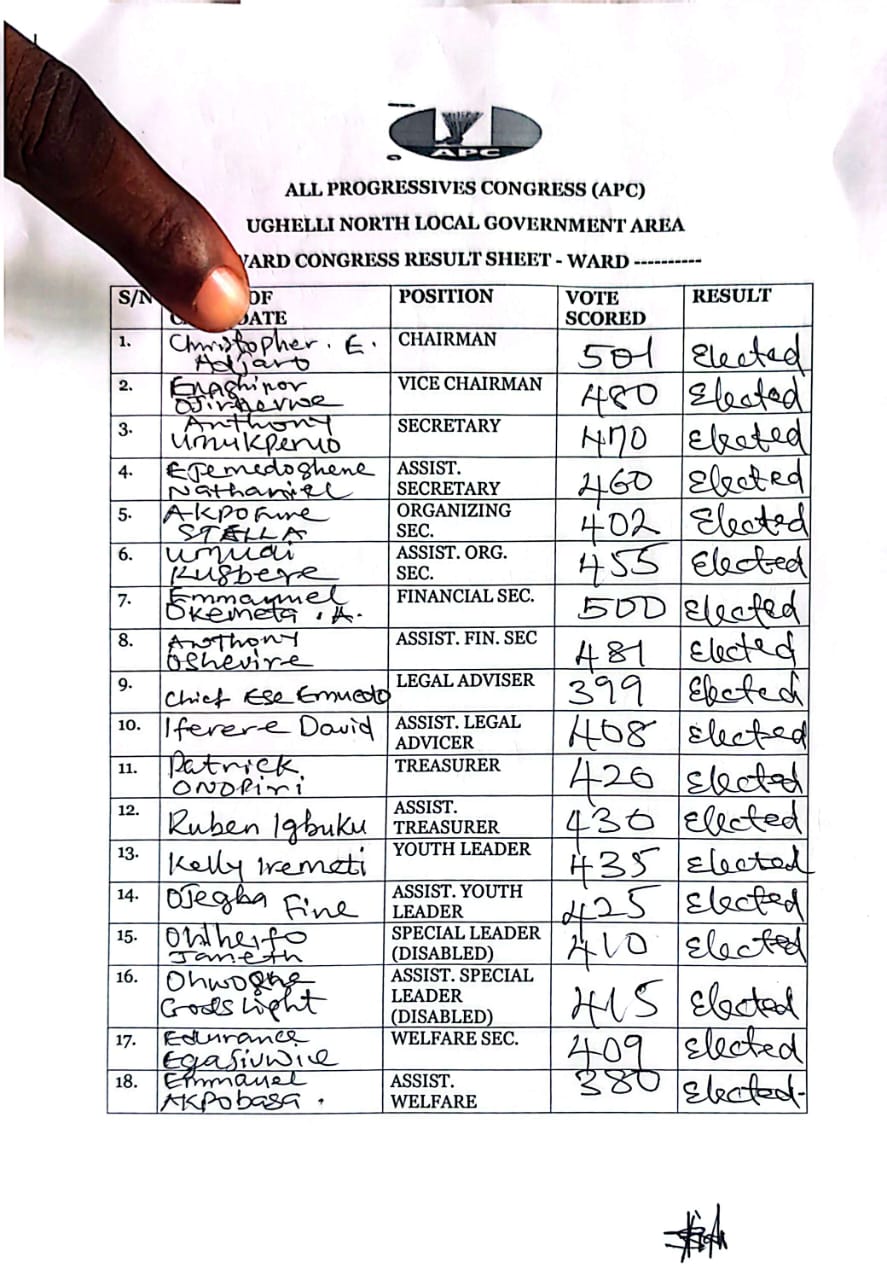 APC
ALL PROGRESSIVES CONGRESS (APC)
UGHELLI NORTH LOCAL GOVERNMENT AREA
WARD CONGRESS RESULT SHEET - WARD ----------
S/N OF POSITION VOTE RESULT
DATE SCORED
1. Christopher . E. CHAIRMAN 501 Elected
Adjaro
2. VICE CHAIRMAN 480 Elected
3. Anthony SECRETARY 470 Elected
Umukperuo
4. Ejemedoghene ASSIST. 460 Elected
Nathaniel SECRETARY
5. Akpofure ORGANIZING 402 Elected
STELLA SEC.
6. Umudi ASSIST. ORG. 455 Elected
Kugbere SEC.
7. Emmanuel FINANCIAL SEC. 500 Elected
Okemeta . A.
8. Anthony ASSIST. FIN. SEC 481 Elected
Oshevire
9. Chief Ese LEGAL ADVISER 399 Elected
10. Iferere David ASSIST. LEGAL 408 Elected
ADVICER
11. Patrick TREASURER 426 Elected
ONOPiri
12. ASSIST. 430 Elected
Ruben Igbuku TREASURER
13. Kelly Iremeti YOUTH LEADER 435 Elected
14. Ojegba Fine ASSIST. YOUTH 425 Elected
LEADER
15. SPECIAL LEADER 410 Elected
Janeth (DISABLED)
16. Ohwoghe ASSIST. SPECIAL 415 Elected
Godslight LEADER
(DISABLED)
17. Edurance WELFARE SEC. 409 Elected
Egasivwie
18. Emmanuel ASSIST. 380 Elected-
AKPobasa . WELFARE